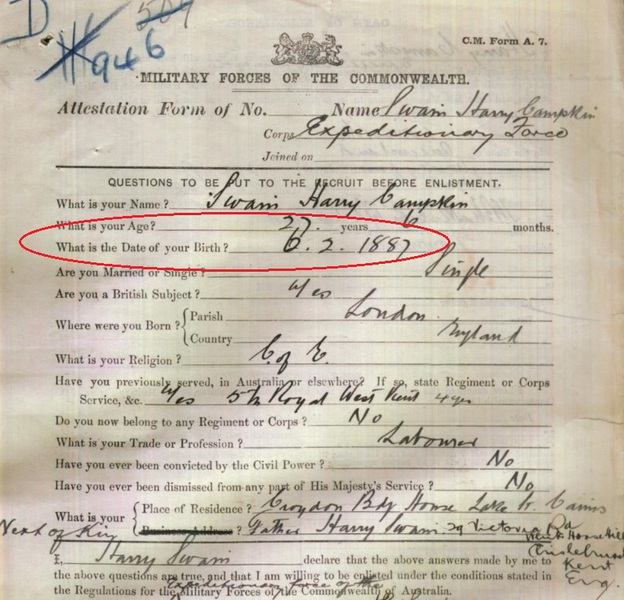 D 504
946
C.M. Form A. 7.
MILITARY FORCES OF THE COMMONWEALTH.
Attestation Form of No. Name Swain Harry Campkin
Corps Expeditionary Force
Joined on
QUESTIONS TO BE PUT TO THE RECRUIT BEFORE ENLISTMENT.
What is your Name? Swain Harry Campkin
What is your Age? 27. years 6 months.
What is the Date of your Birth? 6. 2. 1887
Are you Married or Single? Single
Are you a British Subject? Yes
Where were you Born? { Parish London
Country England
What is your Religion? C. of E.
Have you previously served, in Australia or elsewhere? If so, state Regiment or Corps
Service, &c. Yes 5th Royal West Kent 4 yrs
Do you now belong to any Regiment or Corps? No
What is your Trade or Profession? Labourer
Have you ever been convicted by the Civil Power? No
Have you ever been dismissed from any part of His Majesty's Service? No
What is your { Place of Residence? Croydon Bdg House Lake St. Cairns
Business Address? Father Harry Swain. 29 Victoria Rd
Next of Kin
Kent
Eng.
I, Harry Swain declare that the above answers made by me to
the above questions are true, and that I am willing to be enlisted under the conditions stated in
Expeditionary Force of the
the Regulations for the Military Forces of the Commonwealth of Australia.